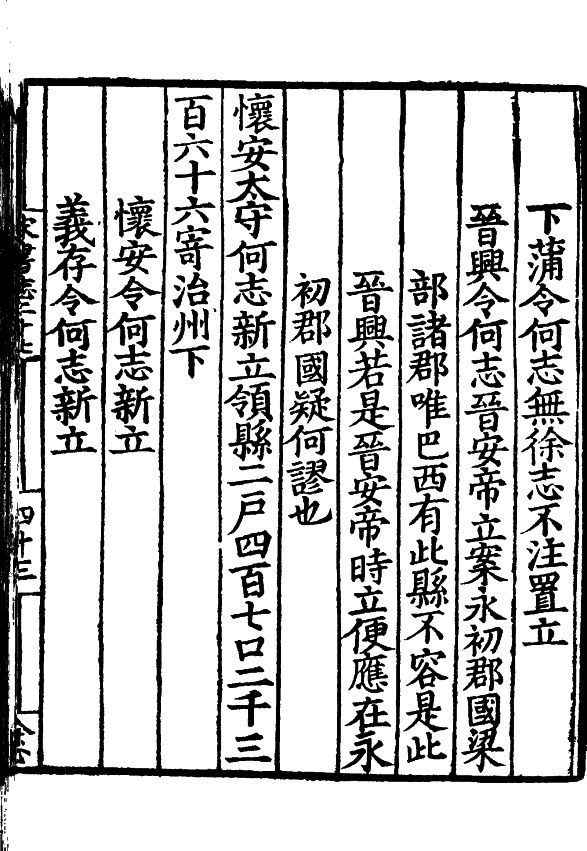 下蒲令何志無徐志不注置立
晉興令何志晉安帝立案永初郡國梁
部諸郡唯巴西有此縣不容是此
晉興若是晉安帝時立便應在永
初郡國疑何謬也
懷安太守何志新立領縣二戶四百七口二千三
百六十六寄治州下
懷安令何志新立
義存令何志新立
宋書志二十七
四十三